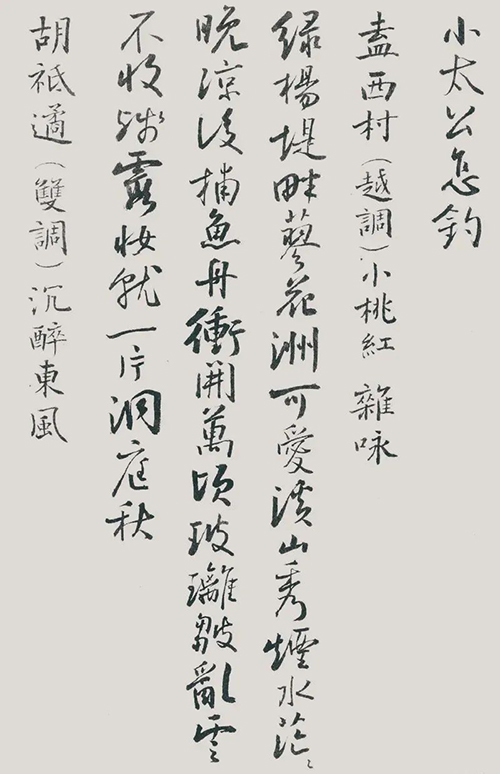 小太公怎釣
盍西村（越調）小桃紅 雜咏
绿楊堤畔蓼花洲可愛溪山秀煙水茫〻
晚凉後捕魚舟衝開萬頃玻璃皱亂雲
不收殘霞妝就一片洞庭秋
胡祗遹（雙調）沉醉東風